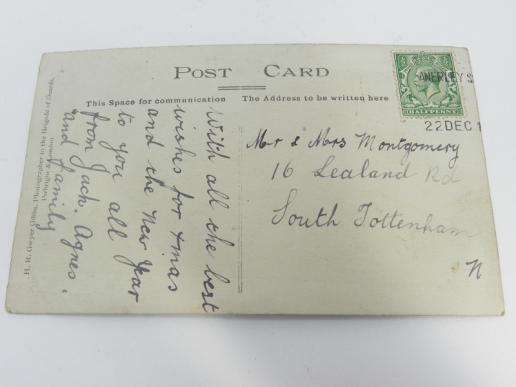 POST CARD
This Space for communication
The Address to be written here
With all the best
wishes for Xmas
and the New Year
to you all
from Jack. Agnes.
and family
Mr & Mrs Montgomery
16 Lealand Rd
South Tottenham
N
HALFPENNY
ANERLEY S
22 DEC 1
H. R. Gwyer Gibbs, Photographer to the Brigade of Guards,